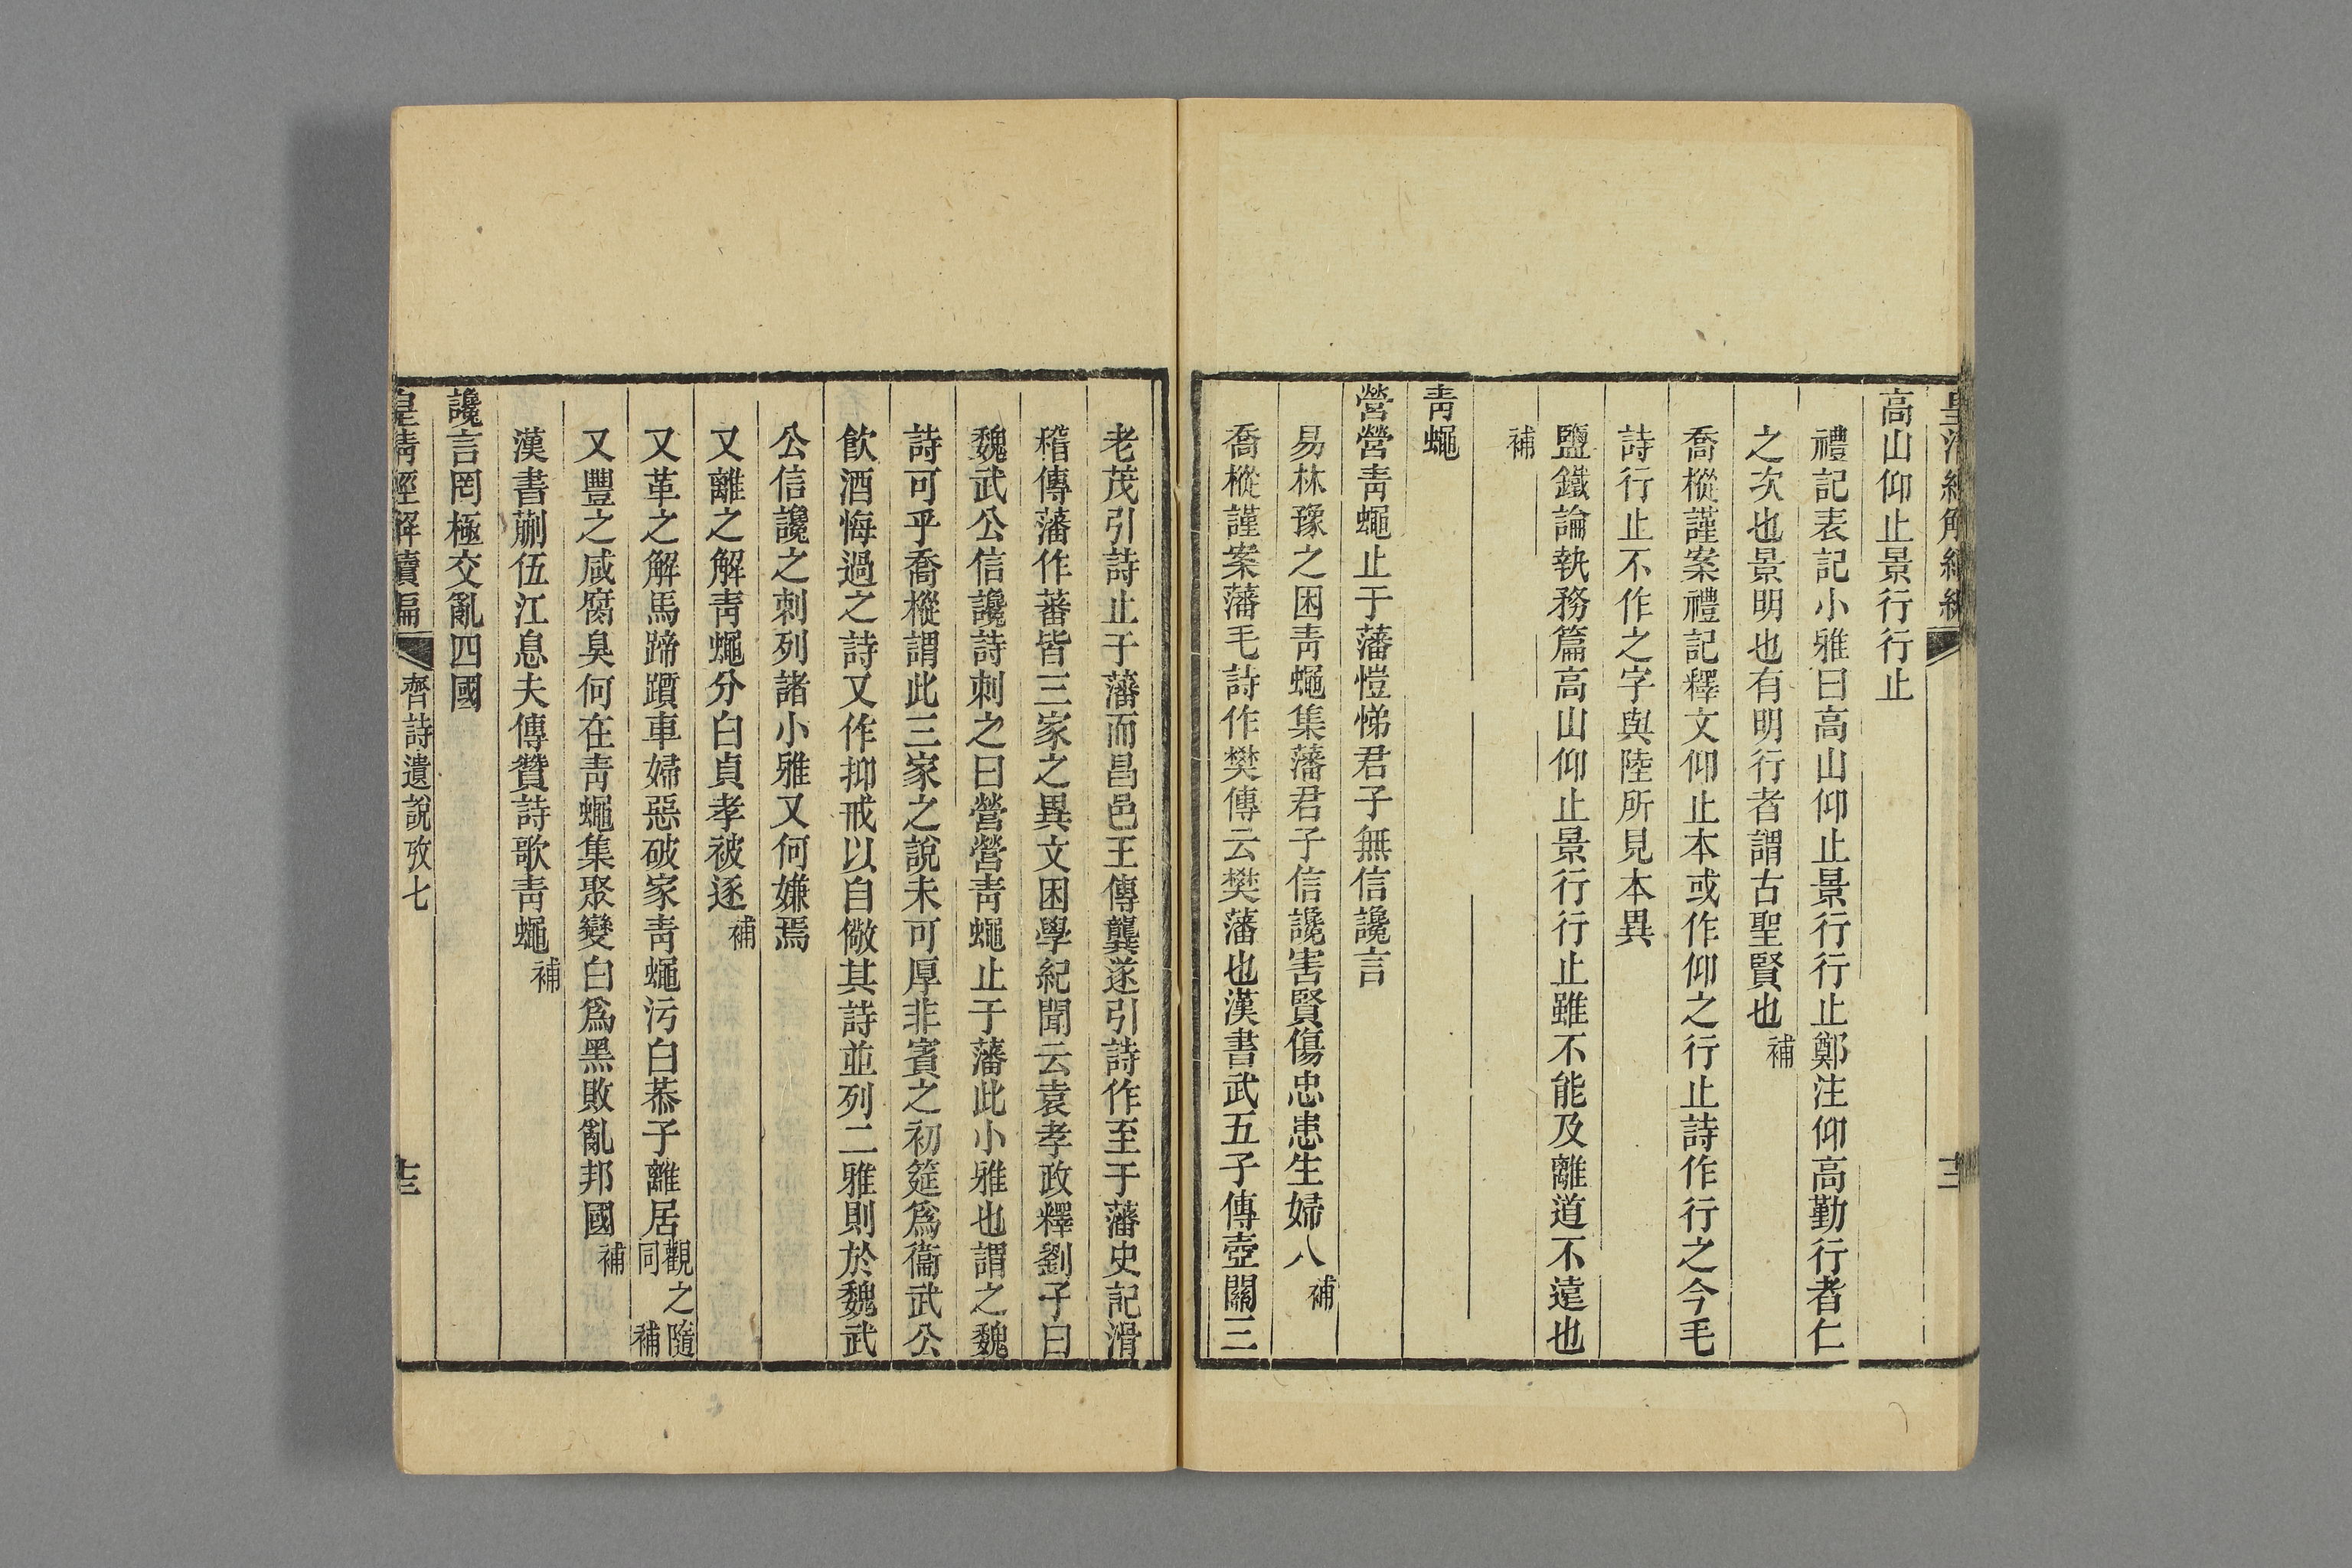 高山仰止景行行止
禮記表記小雅曰高山仰止景行行止鄭注仰高勤行者仁
之次也景明也有明行者謂古聖賢也補
喬樅謹案禮記釋文仰止本或作仰之行止詩作行之今毛
詩行止不作之字與陸所見本異
鹽鐵論執務篇高山仰止景行行止雖不能及離道不遠也
補
靑蠅
營營靑蠅止于藩愷悌君子無信讒言
易林豫之困靑蠅集藩君子信讒害賢傷忠患生婦人補
喬樅謹案藩毛詩作樊傳云樊藩也漢書武五子傳壺關三
老茂引詩止于藩而昌邑王傳龔遂引詩作至于藩史記滑
稽傳藩作蕃皆三家之異文困學紀聞云袁孝政釋劉子曰
魏武公信讒詩刺之曰營營靑蠅止于藩此小雅也謂之魏
詩可乎喬樅謂此三家之說未可厚非賓之初筵爲衞武公
飮酒悔過之詩又作抑戒以自儆其詩並列二雅則於魏武
公信讒之刺列諸小雅又何嫌焉
又離之解靑蠅分白貞孝被逐補
又革之解馬蹄躓車婦惡破家靑蠅污白恭子離居觀之隨同補
又豐之咸腐臭何在靑蠅集聚變白爲黑敗亂邦國補
漢書蒯伍江息夫傳贊詩歌靑蠅補
讒言罔極交亂四國
皇淸經解續編 齊詩遺說攷七 十三